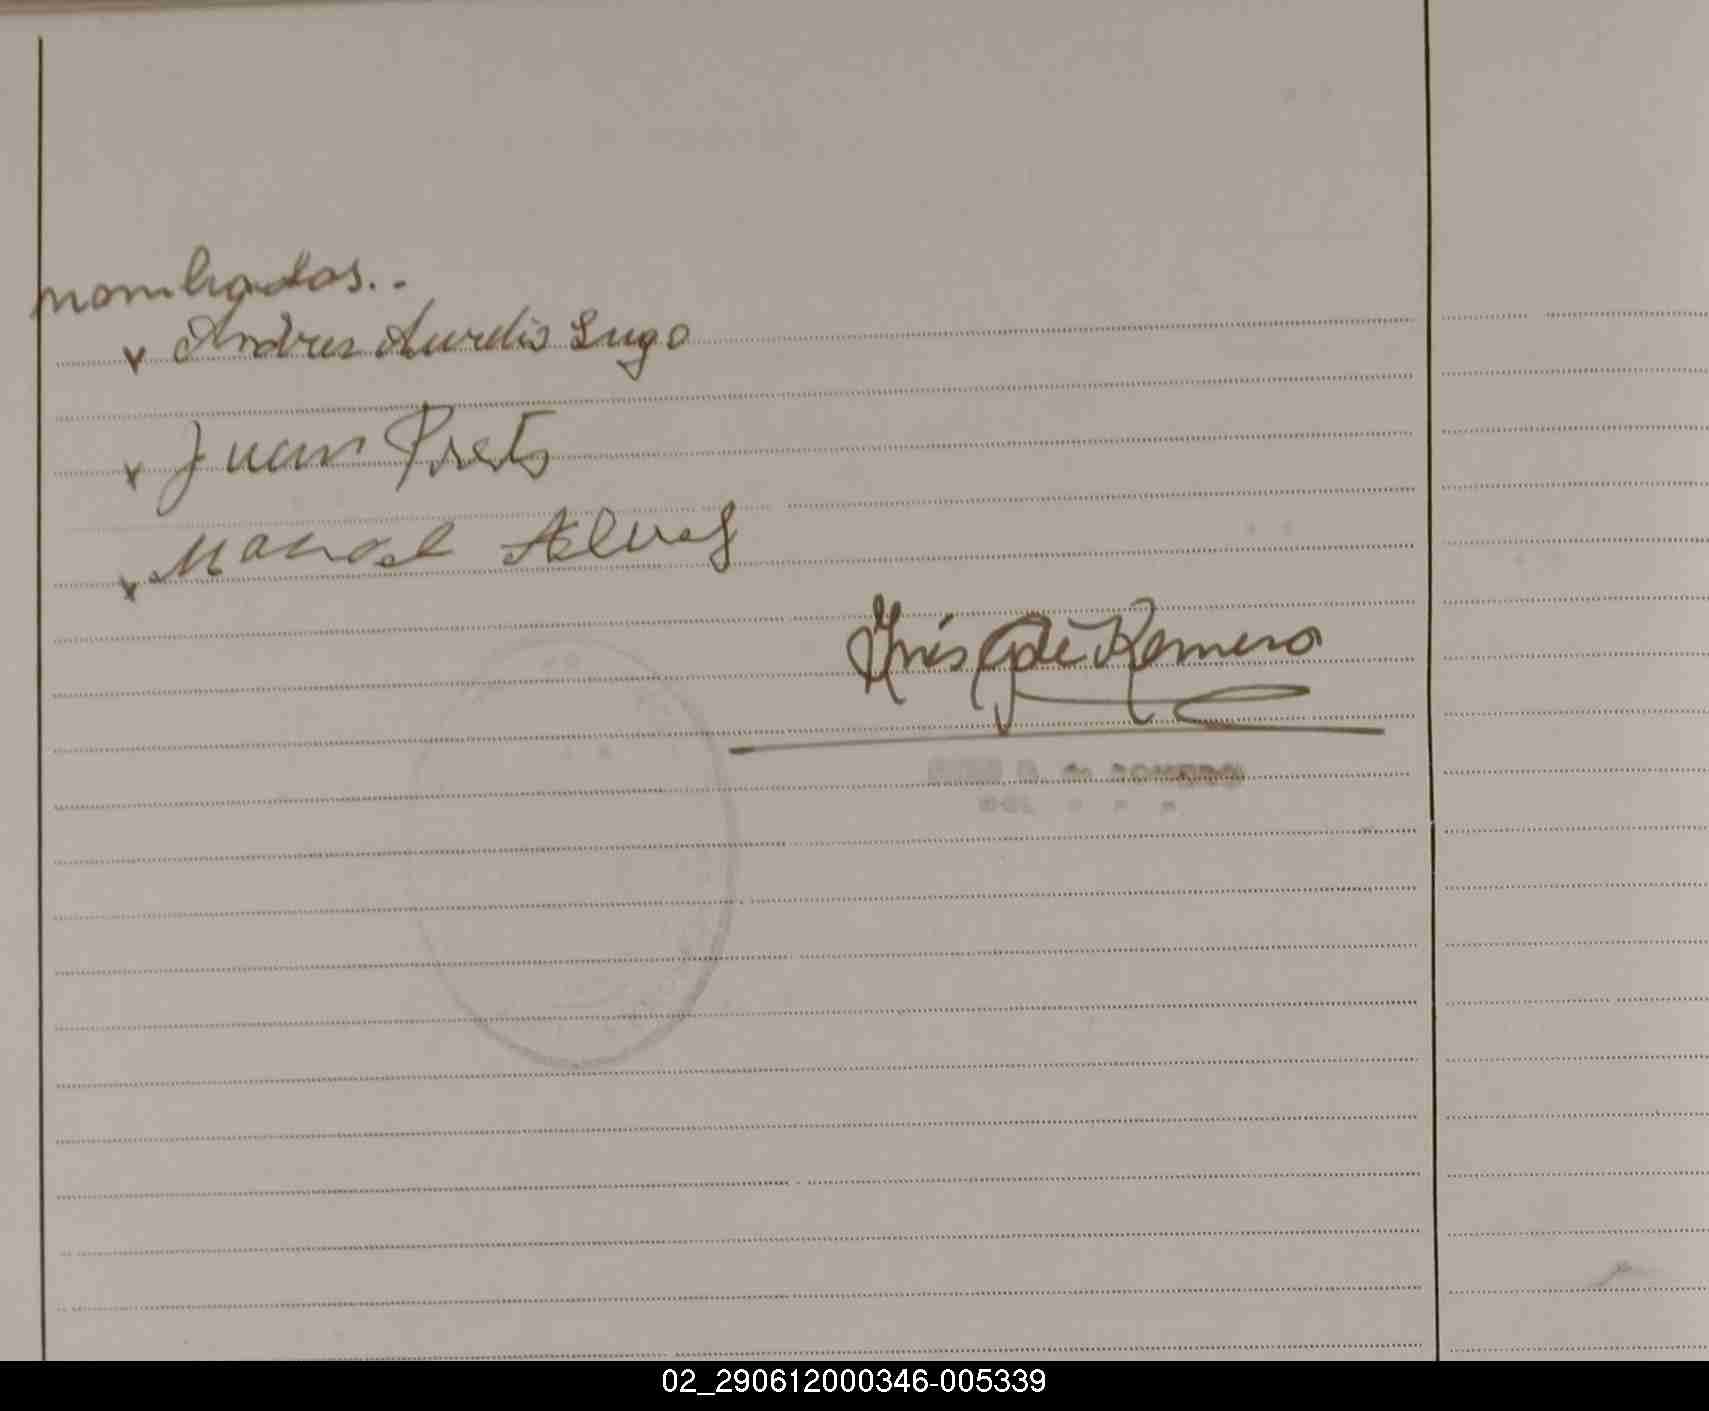 nombrados..
v Andres Aurelio Lugo
v Juan Prieto
v Manuel Alvez
Inés G de Romero
INES G. de ROMERO
02_290612000346-005339